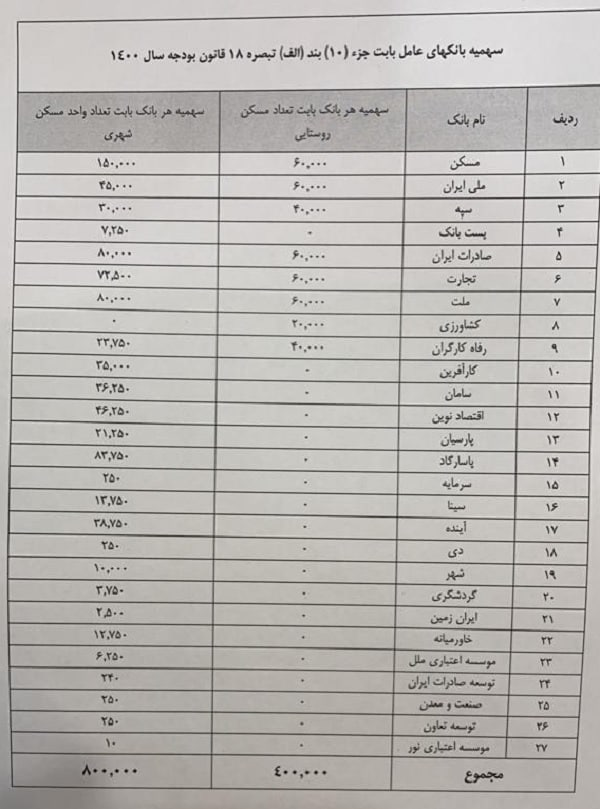 سهمیه بانکهای عامل بابت جزء (۱۰) بند (الف) تبصره ۱۸ قانون بودجه سال ۱۴۰۰
ردیف نام بانک سهمیه هر بانک بابت تعداد مسکن روستایی سهمیه هر بانک بابت تعداد واحد مسکن شهری
۱ مسکن ۶۰,۰۰۰ ۱۵۰,۰۰۰
۲ ملی ایران ۶۰,۰۰۰ ۴۵,۰۰۰
۳ سپه ۴۰,۰۰۰ ۳۰,۰۰۰
۴ پست بانک ۰ ۷,۲۵۰
۵ صادرات ایران ۶۰,۰۰۰ ۸۰,۰۰۰
۶ تجارت ۶۰,۰۰۰ ۷۲,۵۰۰
۷ ملت ۶۰,۰۰۰ ۸۰,۰۰۰
۸ کشاورزی ۲۰,۰۰۰ ۰
۹ رفاه کارگران ۴۰,۰۰۰ ۲۳,۷۵۰
۱۰ کارآفرین ۰ ۳۵,۰۰۰
۱۱ سامان ۰ ۳۶,۲۵۰
۱۲ اقتصاد نوین ۰ ۴۶,۲۵۰
۱۳ پارسیان ۰ ۲۱,۲۵۰
۱۴ پاسارگاد ۰ ۸۳,۷۵۰
۱۵ سرمایه ۰ ۲۵۰
۱۶ سینا ۰ ۱۳,۷۵۰
۱۷ آینده ۰ ۳۸,۷۵۰
۱۸ دی ۰ ۲۵۰
۱۹ شهر ۰ ۱۰,۰۰۰
۲۰ گردشگری ۰ ۳,۷۵۰
۲۱ ایران زمین ۰ ۲,۵۰۰
۲۲ خاورمیانه ۰ ۱۲,۷۵۰
۲۳ موسسه اعتباری ملل ۰ ۶,۲۵۰
۲۴ توسعه صادرات ایران ۰ ۲۴۰
۲۵ صنعت و معدن ۰ ۲۵۰
۲۶ توسعه تعاون ۰ ۲۵۰
۲۷ موسسه اعتباری نور ۰ ۱۰
مجموع ۴۰۰,۰۰۰ ۸۰۰,۰۰۰